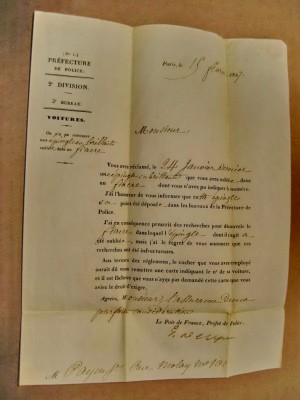 PRÉFECTURE
DE POLICE.
2e DIVISION.
2e BUREAU.
VOITURES.
Monsieur
Vous avez réclamé, le 24 Janvier dernier
une épingle en brillants que vous avez oubliée dans
un fiacre dont vous n'avez pu indiquer le numéro.
J'ai l'honneur de vous informer que cette épingle
n'a point été déposée dans les bureaux de la Préfecture de
Police.
J'ai en conséquence prescrit des recherches pour découvrir le
fiacre dans lequel l'épingle dont il s'agit a
été oubliée, mais j'ai le regret de vous annoncer que ces
recherches ont été infructueuses.
Aux termes des règlemens, le cocher que vous avez employé
aurait dû vous remettre une carte indiquant le no de sa voiture,
et il est fâcheux que vous n'ayez pas demandé cette carte que vous
aviez le droit d'exiger.
Agréez, Monsieur, l'assurance de ma
parfaite considération
Le Pair de France, Préfet de Police,